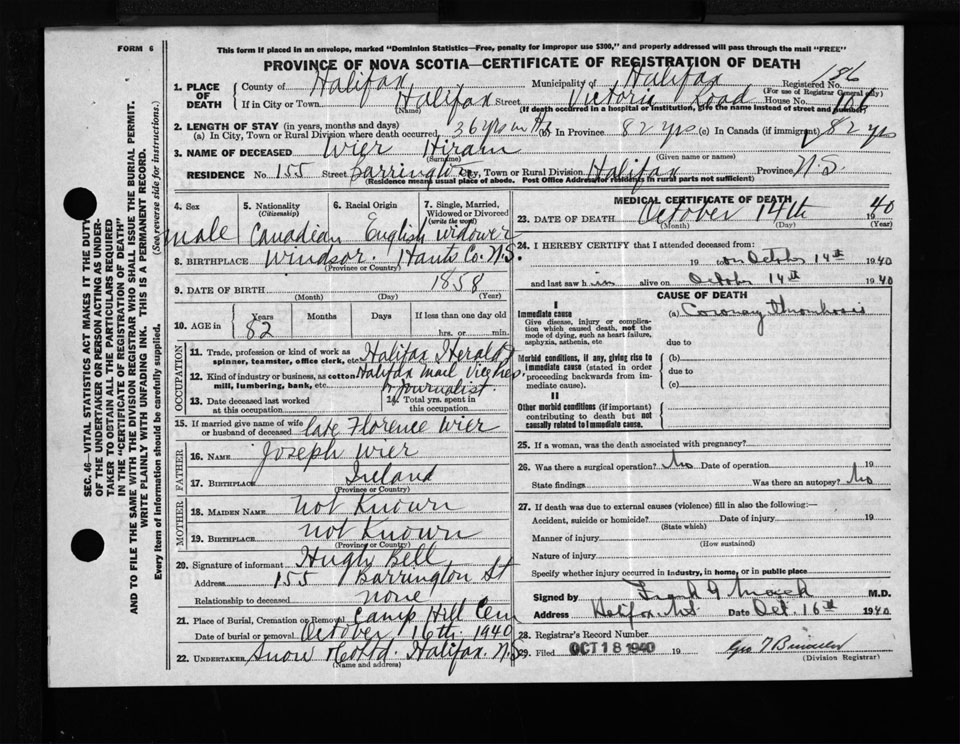 FORM 6
This form if placed in an envelope, marked "Dominion Statistics—Free, penalty for improper use $300," and properly addressed will pass through the mail "FREE"
PROVINCE OF NOVA SCOTIA—CERTIFICATE OF REGISTRATION OF DEATH
1. PLACE OF DEATH
County of Halifax Municipality of Halifax Registered No. 186
(For use of Registrar General only)
If in City or Town Halifax Street Victoria Road House No. 106
(Name) (If death occurred in a hospital or institution, give the name instead of street and number)
2. LENGTH OF STAY (in years, months and days)
(a) In City, Town or Rural Division where death occurred 36 yrs (b) In Province 82 yrs (c) In Canada (if immigrant) 82 yrs
3. NAME OF DECEASED Wier Hiram
(Surname) (Given name or names)
RESIDENCE No. 155 Street Barrington City, Town or Rural Division Halifax Province N.S.
(Residence means usual place of abode. Post Office Address for residents in rural parts not sufficient)
4. Sex
male
5. Nationality
(Citizenship)
Canadian
6. Racial Origin
English
7. Single, Married, Widowed or Divorced
(write the word)
widower
8. BIRTHPLACE Windsor. Hants Co. N.S.
(Province or Country)
9. DATE OF BIRTH 1858
(Month) (Day) (Year)
10. AGE in
Years Months Days If less than one day
82 hrs. or min.
OCCUPATION
11. Trade, profession or kind of work as spinner, teamster, office clerk, etc. Halifax Herald
12. Kind of industry or business, as cotton mill, lumbering, bank, etc. Halifax Mail Vice Pres.
Journalist.
13. Date deceased last worked at this occupation
14. Total yrs. spent in this occupation
15. If married give name of wife or husband of deceased late Florence Wier
FATHER
16. NAME Joseph Wier
17. BIRTHPLACE Ireland
(Province or Country)
MOTHER
18. MAIDEN NAME not Known
19. BIRTHPLACE not Known
(Province or Country)
20. Signature of informant Hugh Bell
Address 155 Barrington St
Relationship to deceased none
21. Place of Burial, Cremation or Removal Camp Hill Cem
Date of burial or removal October 16th. 1940
22. UNDERTAKER Snow & Co Ltd. Halifax. N.S.
(Name and address)
MEDICAL CERTIFICATE OF DEATH
23. DATE OF DEATH October 14th 1940
(Month) (Day) (Year)
24. I HEREBY CERTIFY that I attended deceased from:
19 to on October 14th 1940
and last saw him alive on October 14th 1940
CAUSE OF DEATH
I
Immediate cause
Give disease, injury or complication which caused death, not the mode of dying, such as heart failure, asphyxia, asthenia, etc.
(a) Coronary thrombosis
due to
Morbid conditions, if any, giving rise to immediate cause (stated in order proceeding backwards from immediate cause).
(b)
due to
(c)
II
Other morbid conditions (if important) contributing to death but not causally related to immediate cause.
25. If a woman, was the death associated with pregnancy?
26. Was there a surgical operation? No Date of operation 19
State findings Was there an autopsy? No
27. If death was due to external causes (violence) fill in also the following:—
Accident, suicide or homicide? Date of injury 19
(State which)
Manner of injury
(How sustained)
Nature of injury
Specify whether injury occurred in industry, in home, or in public place
Signed by Frank G Mack M.D.
Address Halifax N.S. Date Oct. 16th 1940
28. Registrar's Record Number
29. Filed OCT 18 1940 19
(Division Registrar)
SEC. 46—VITAL STATISTICS ACT MAKES IT THE DUTY OF THE UNDERTAKER OR PERSON ACTING AS UNDERTAKER TO OBTAIN ALL THE PARTICULARS REQUIRED IN THE "CERTIFICATE OF REGISTRATION OF DEATH" AND TO FILE THE SAME WITH THE DIVISION REGISTRAR WHO SHALL ISSUE THE BURIAL PERMIT.
WRITE PLAINLY WITH UNFADING INK. THIS IS A PERMANENT RECORD.
Every item of information should be carefully supplied. (See reverse side for instructions.)